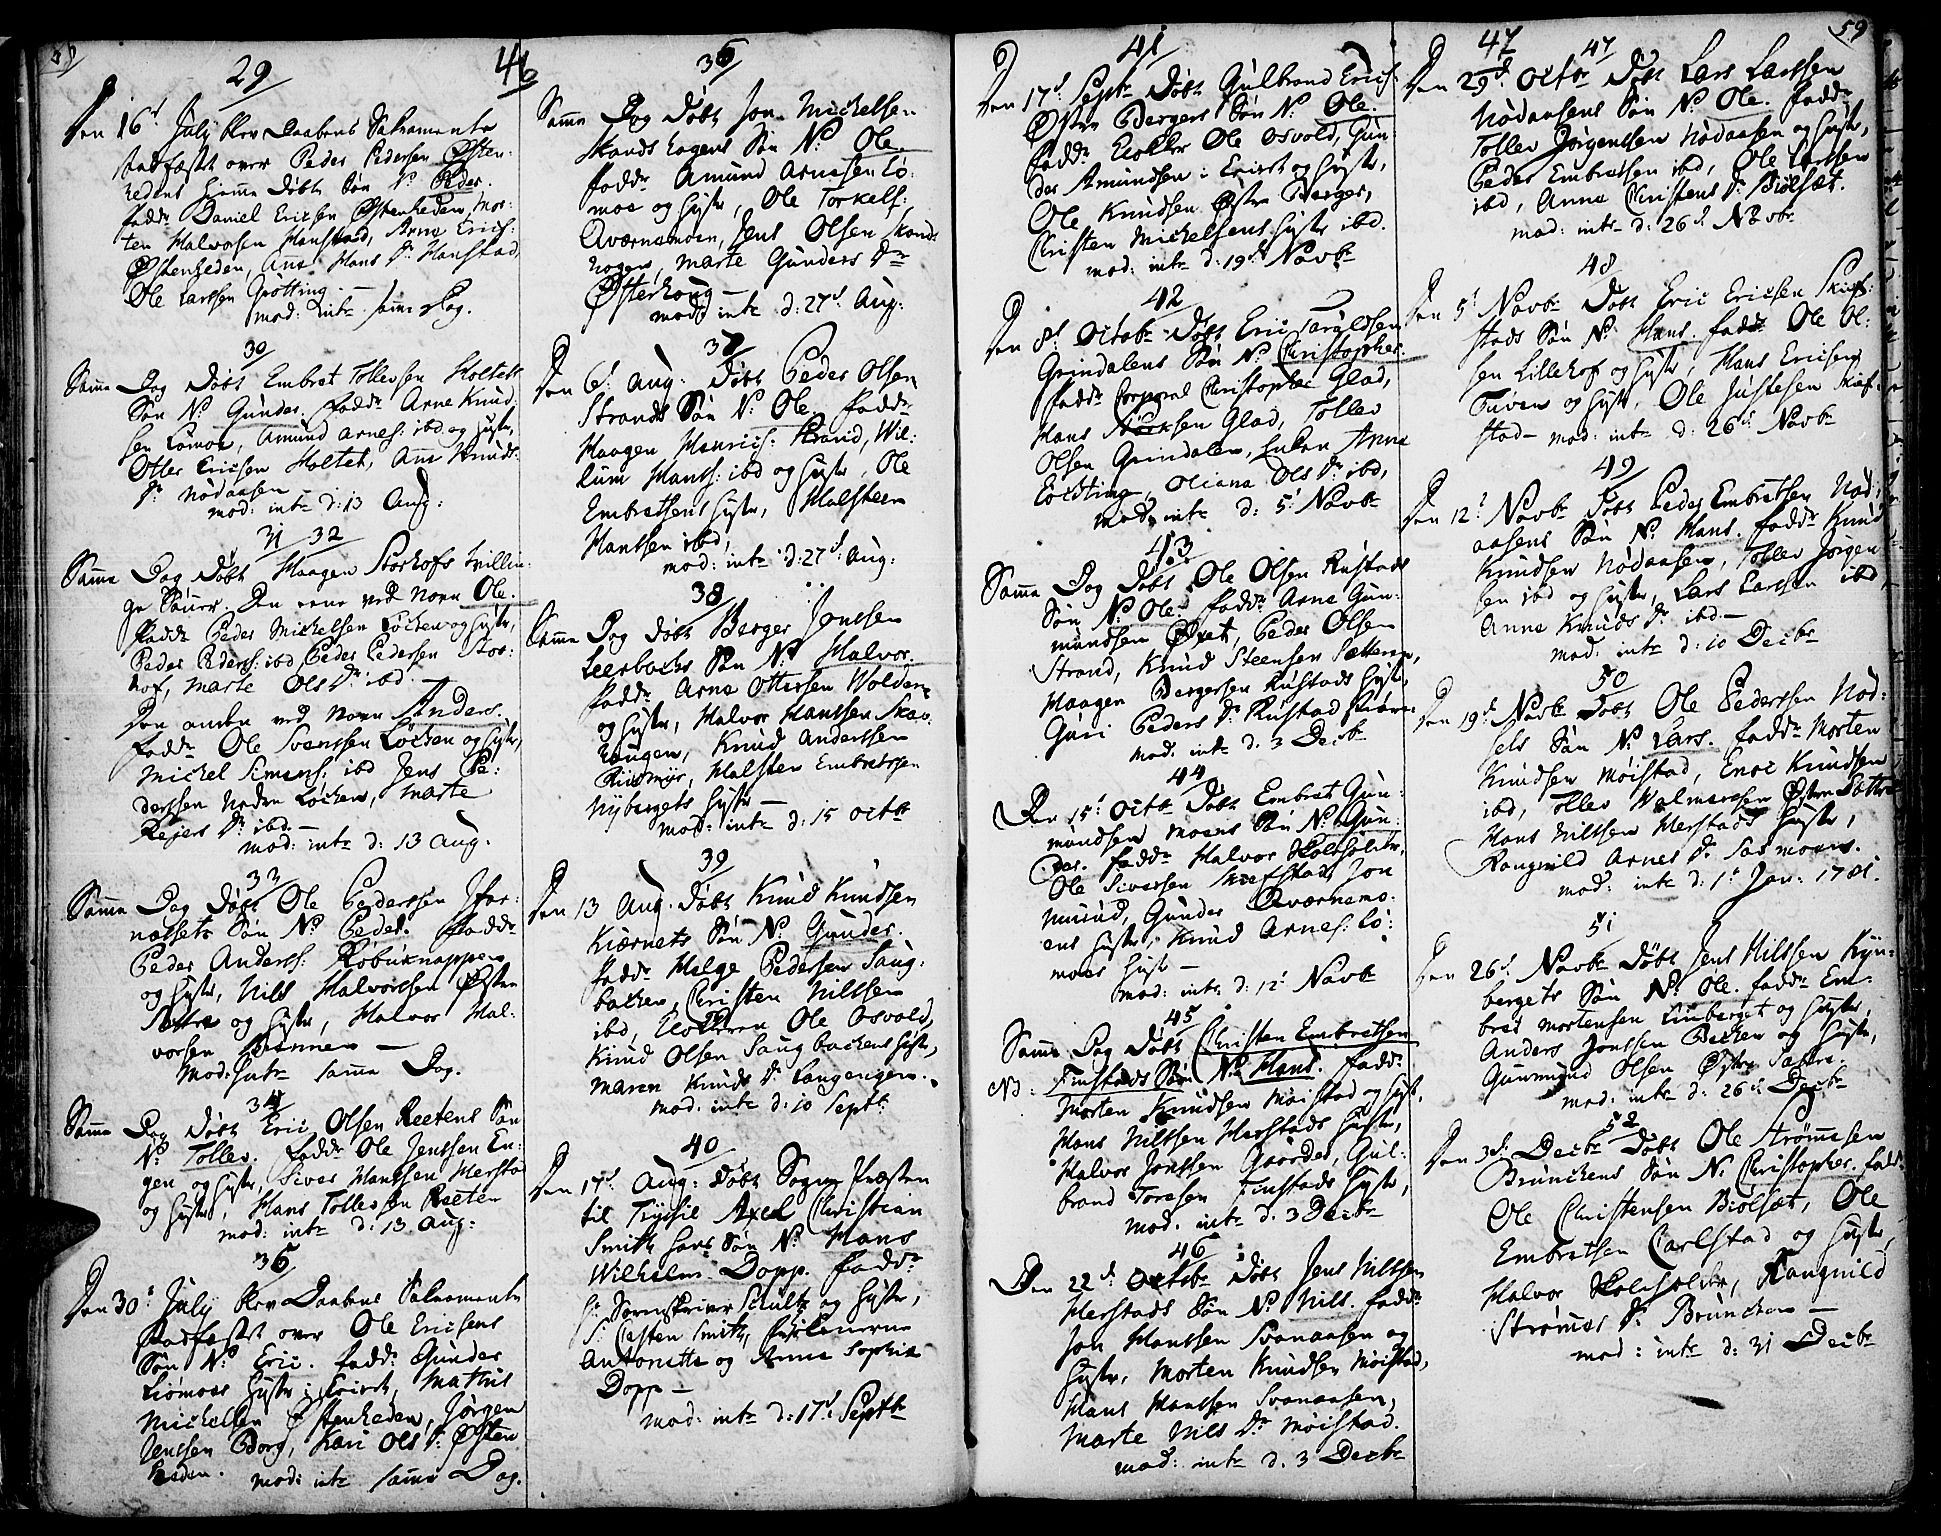 29
Den 16d July blev Daabens Sacramente
stadfæst over Peder Pedersen Østen-
hedens hjemme døbte Søn N: Peder.
fadd: Daniel Ericsen Østenheden, Mor-
ten Halvorsen Hanstad, Arne Erics:
Østenheden, Ane Hans Dr Hanstad,
Ole Larssen Grøtting. —
mod: intr samme Dag.
30
Samme Dag døbt Embret Tollevsen Holtets
Søn N: Gunder. fadd: Arne Knud-
sen Lømoe, Amund Arnes: ibd og Hustr,
Otter Ericsen Holtet, Ane Knuds
Dr Nødaasen —
mod: intr d: 13 Aug:
31 32
Samme Dag døbt Haagen Storhofs tvillin-
ge Sønner. Den eene ved Navn Ole.
Fadd: Peder Michelsen Løcken og Hustr,
Peder Peders: ibd Peder Pedersen Stor-
hof, Marte Ols Dr ibd —
Den anden ved Navn Anders.
Fadd: Ole Svenssen Løcken og Hustr,
Michel Simens: ibd Jens Pe-
derssen Nedre Løcken, Marte
Rejers Dr ibd. —
mod: intr d: 13 Aug.
33
Samme Dag døbt Ole Pederssen
Søn N: Peder. Fadd:
Peder Anderss: Røbuknappen
og Hustr, Nils Halvorssen Østre
Sættre og Hustr, Halvor Hal-
vorsen Brennen —
Mod: Intr samme Dag.
34
Samme Dag døbt Eric Olsen Reetens Søn
N: Tollev. Fadd: Ole Jenssen En-
gen og Hustr, Siver Hanssen Merstad
og Hustr, Hans Tollevsen Reeten
mod: intr d: 13 Aug:
35
Den 30d July blev Daabens Sacramente
stadfæstet over Ole Ericsens
Søn N: Eric. fadd: Gunder
Liømoes Hustr i Eirset, Mathis
Michelsen Østenheden, Jørgen
Jenssen Borg, Kari Ols Dr Østen
heden. mod: intr samme Dag.
36
Samme Dag døbt Jon Mickelsen
Skandshagens Søn N: Ole.
fadd: Amund Arnesen Lø-
moe og Hustr, Ole Torkels:
Qværnemoen, Jens Olsen Skands
hagen, Marte Gunders Dr
Østerhoug —
mod: intr d: 27d Aug:
37
Den 6d Aug: døbt Peder Olsen
Strands Søn N: Ole. fadd:
Haagen Henrics: Strand, Wil-
lum Hanss: ibd og Hustr Ole
Embretsens Hustr, Halsteen
Hanssen ibd,
mod: intr d: 27d Aug:
38
Samme Dag døbt Berger Jonssen
Leerbacks Søn N: Halvor.
fadd: Arne Ottersen Wolden
og Hustr, Halvor Hanssen Skav-
haugen, Knud Anderssen
Riismyr, Halsten Embretsøn
Nybergets Hustr —
mod: intr d: 15 Octb
39
Den 13 Aug. døbt Knud Knudsen
Kiærnets Søn N: Gunder.
fadd: Helge Pedersen Saug-
backen, Christen Nilssen
ibd, Klokkeren Ole Osvold,
Knud Olsen Saugbackens Hustr,
Maren Knuds Dr Langengen.
mod: intr d: 10 Septb:
40
Den 17d Aug: døbt Sogne Præsten
til Tryssil Axel Christian
Smith hans Søn N: Hans
Wilhelm Dopp. fadd:
Hr Sorenskriver Schultz og Hustr,
Sr Casten Smith, Frøikenerne
Antonette og Anne Sophia
Dopp —
mod: intr d: 17d Septb
41
Den 17d Septb døbt Gulbrand Erics:
Østre Bergers Søn N: Ole.
fadd: Klokker Ole Osvold, Gun-
der Amundsen i Eirset og Hustr,
Ole Knudsen Østre Berger,
Christen Michelsens Hustr ibd.
mod: intr d: 19d Novb
42
Den 8d Octob: døbt Eric Taraldsen
Grindalens Søn N: Christopher
fadd: Corporal Christopher Glad,
Hans Glad, Tollev
Olsen Grindalen, Enken Anne
Oliana Ols Dr ibd,
mod: intr d: 5d Novb
43
Samme Dag døbt Ole Olsen Rustads
Søn N: Ole. fadd: Arne Gun-
mundsen Øxet, Peder Olsen
Strand, Knud Steensen Sætteren,
Haagen Bergersen Rustads Hustr,
Guri Peders Dr Rustad
mod: intr d: 3 Decb
44
Den 15d Octb døbt Embret Gun-
mundsen Moens Søn N: Gun-
der. fadd: Halvor Skolholder,
Ole Siversen Skiefstad, Jon
Ullerud, Gunder Qværnemo-
ens Hustr, Knud Arnes: Lø-
moes Hustr —
mod: intr d: 12d Novb
45
Samme Dag døbt Christen Embretsen
NB: Finstads Søn N: Hans. fadd:
Morten Knudsen Møistad og Hustr,
Hans Nilssen Merstads Hustr,
Halvor Jonssen Gaarder, Gul-
brand Toresen Finstads Hustr,
mod: intr d: 3 Decb
46
Den 22d Octob: døbt Jens Nilssen
Merstads Søn N: Nils. fadd:
Jon Hanssen Svenaasen og
Hustr, Morten Knudsen Møistad,
Hans Hanssen Svenaasen,
Marte Nils Dr Møistad.
mod: intr d: 3 Decb
59
47 47
Den 29d Octbr døbt Lars Larssen
Nødaasens Søn N: Ole. fadd:
Tollev Jørgenssen Nødaasen og Hustr,
Peder Embretsen ibd, Ole Larssen
ibd, Anne Christens Dr Biølset.
mod: intr d: 26d Novb
48
Den 5d Novb døbt Eric Ericsen Skief-
stads Søn N: Hans. fadd: Ole Ol-
sen Lillehof og Hustr, Hans Ericsen
Tuven og Hustr, Ole Justesen Skief-
stad — mod: intr d: 26d Novb
49
Den 12d Novb døbt Peder Embretsen Nød-
aasens Søn N: Hans. fadd: Knud
Knudsen Nødaasen, Tollev Jørgen-
sen ibd og Hustr, Lars Larssen ibd
Anne Knuds Dr ibd —
mod: intr d: 10 Decb
50
Den 19d Novb døbt Ole Pedersen Nød-
sets Søn N: Lars. fadd: Morten
Knudsen Møistad, Enoc Knudsen
ibd, Tollev Halvorsen Østre Sættre
Hans Nilssen Merstads Hustr,
Rangnild Arnes Dr Sarmoen.
mod: intr d: 1d Jan: 1781.
51
Den 26d Novb døbt Jens Nilssen Kyn-
bergets Søn N: Ole. fadd: Em-
bret Mortensen Kinberget og Hustr,
Anders Jonssen Becken og Hustr,
Gunmund Olsen Østre Sættre.
mod: intr d: 26d Decb
52
Den 3d Decb døbt Ole Strømmesen
Brunckens Søn N: Christopher. fadd:
Ole Christensen Biølset, Ole
Embretsen Carlstad og Hustr,
Halvor Skoleholder, Rangnild
Strømes Dr Bruncken —
mod: intr d: 31 Decb